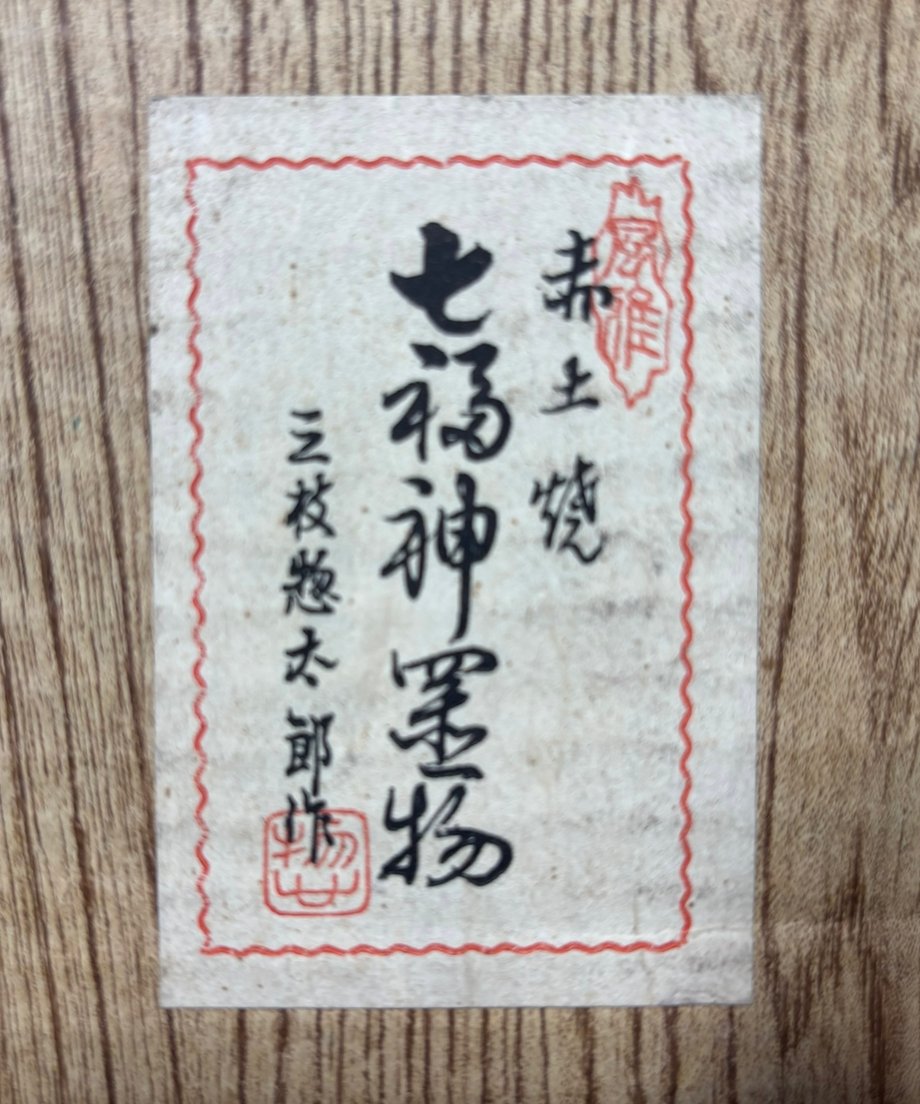 風雅
赤土焼
七福神置物
三枝惣太郎作